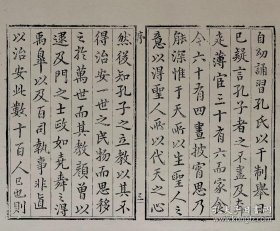 自幼誦習孔氏以干制舉
已疑言孔子者之不盡及奔
走薄宦三十有六而家食
今六十有四晝披宵思乃
能深惟于天所以生聖人之
意以得聖人所以代天之心
序
三
然後知孔子之立教以其不
得治安一世之民物而思移
之於萬世而其教顏曾以
逮及門之士政如堯舜之得
禹皋以及百司執事非直
以治安此數十百人已也則